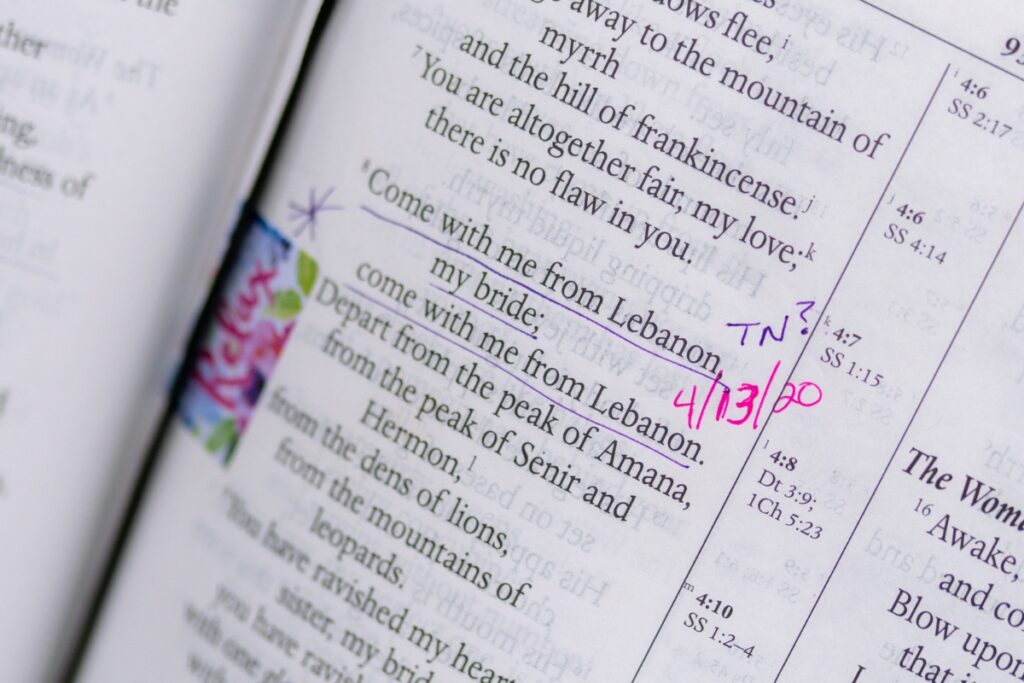 the
ther
ing.
dness of
Relax
ows flee,i
away to the mountain of
myrrh
and the hill of frankincense.j
7 You are altogether fair, my love;k
there is no flaw in you.
8 Come with me from Lebanon,
my bride;
come with me from Lebanon.
Depart from the peak of Amana,
from the peak of Senir and
Hermon,l
from the dens of lions,
from the mountains of
leopards.
You have ravished my heart
sister, my brid
you have ravish
with one
with
TN?
4/13/20
i 4:6
SS 2:17
j 4:6
SS 4:14
k 4:7
SS 1:15
l 4:8
Dt 3:9;
1Ch 5:23
m 4:10
SS 1:2–4
The Woma
16 Awake,
and co
Blow upon
that i